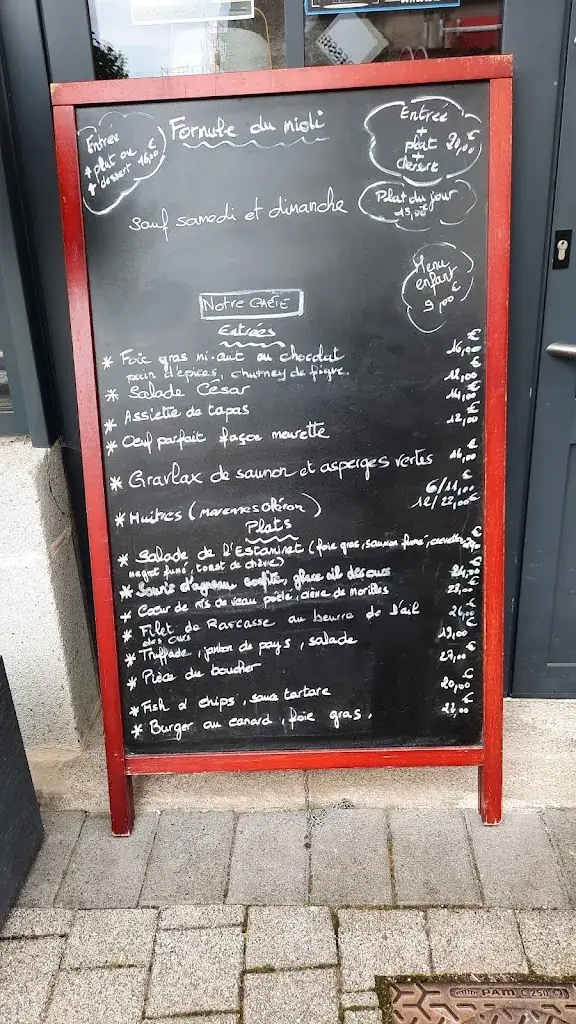 Formule du midi
Entrée
+ plat ou
+ dessert
Entrée
+
plat 20,00 €
+
dessert
Plat du jour
15,00 €
Sauf samedi et dimanche
Menu
enfant
9,00 €
Notre CARTE
Entrées
* Foie gras mi-cuit au chocolat 16,00 €
pain d'épices, chutney de figue
* Salade César
* Assiette de tapas 14,00 €
* Oeuf parfait façon meurette 12,00 €
* Gravlax de saumon et asperges vertes
* Huitres (marennes oléron) 6/11,00 €
12/22,00 €
Plats
* Salade de l'Estaminet (foie gras, saumon fumé,
magret fumé, toast de chèvre)
* Souris d'agneau confite, glace ail des ours
* Coeur de ris de veau poêlé, crème de morilles
* Filet de Rascasse au beurre de l'ail
des ours
* Truffade, jambon de pays, salade 19,00 €
* Pièce du boucher 27,00 €
* Fish & chips, sauce tartare 20,00 €
* Burger au canard, foie gras.
PAM C 250